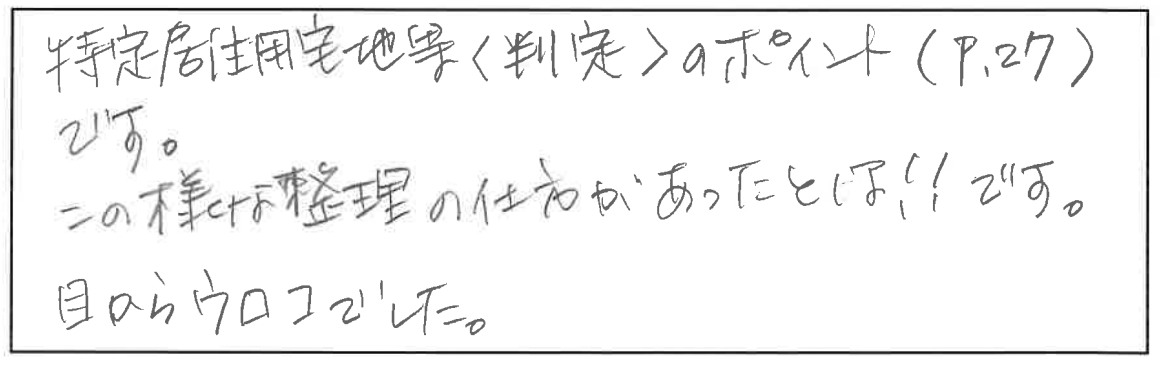 特定居住用宅地等〈判定〉のポイント(P.27)
です。
この様な整理の仕方があったとは!!です。
目からウロコでした。